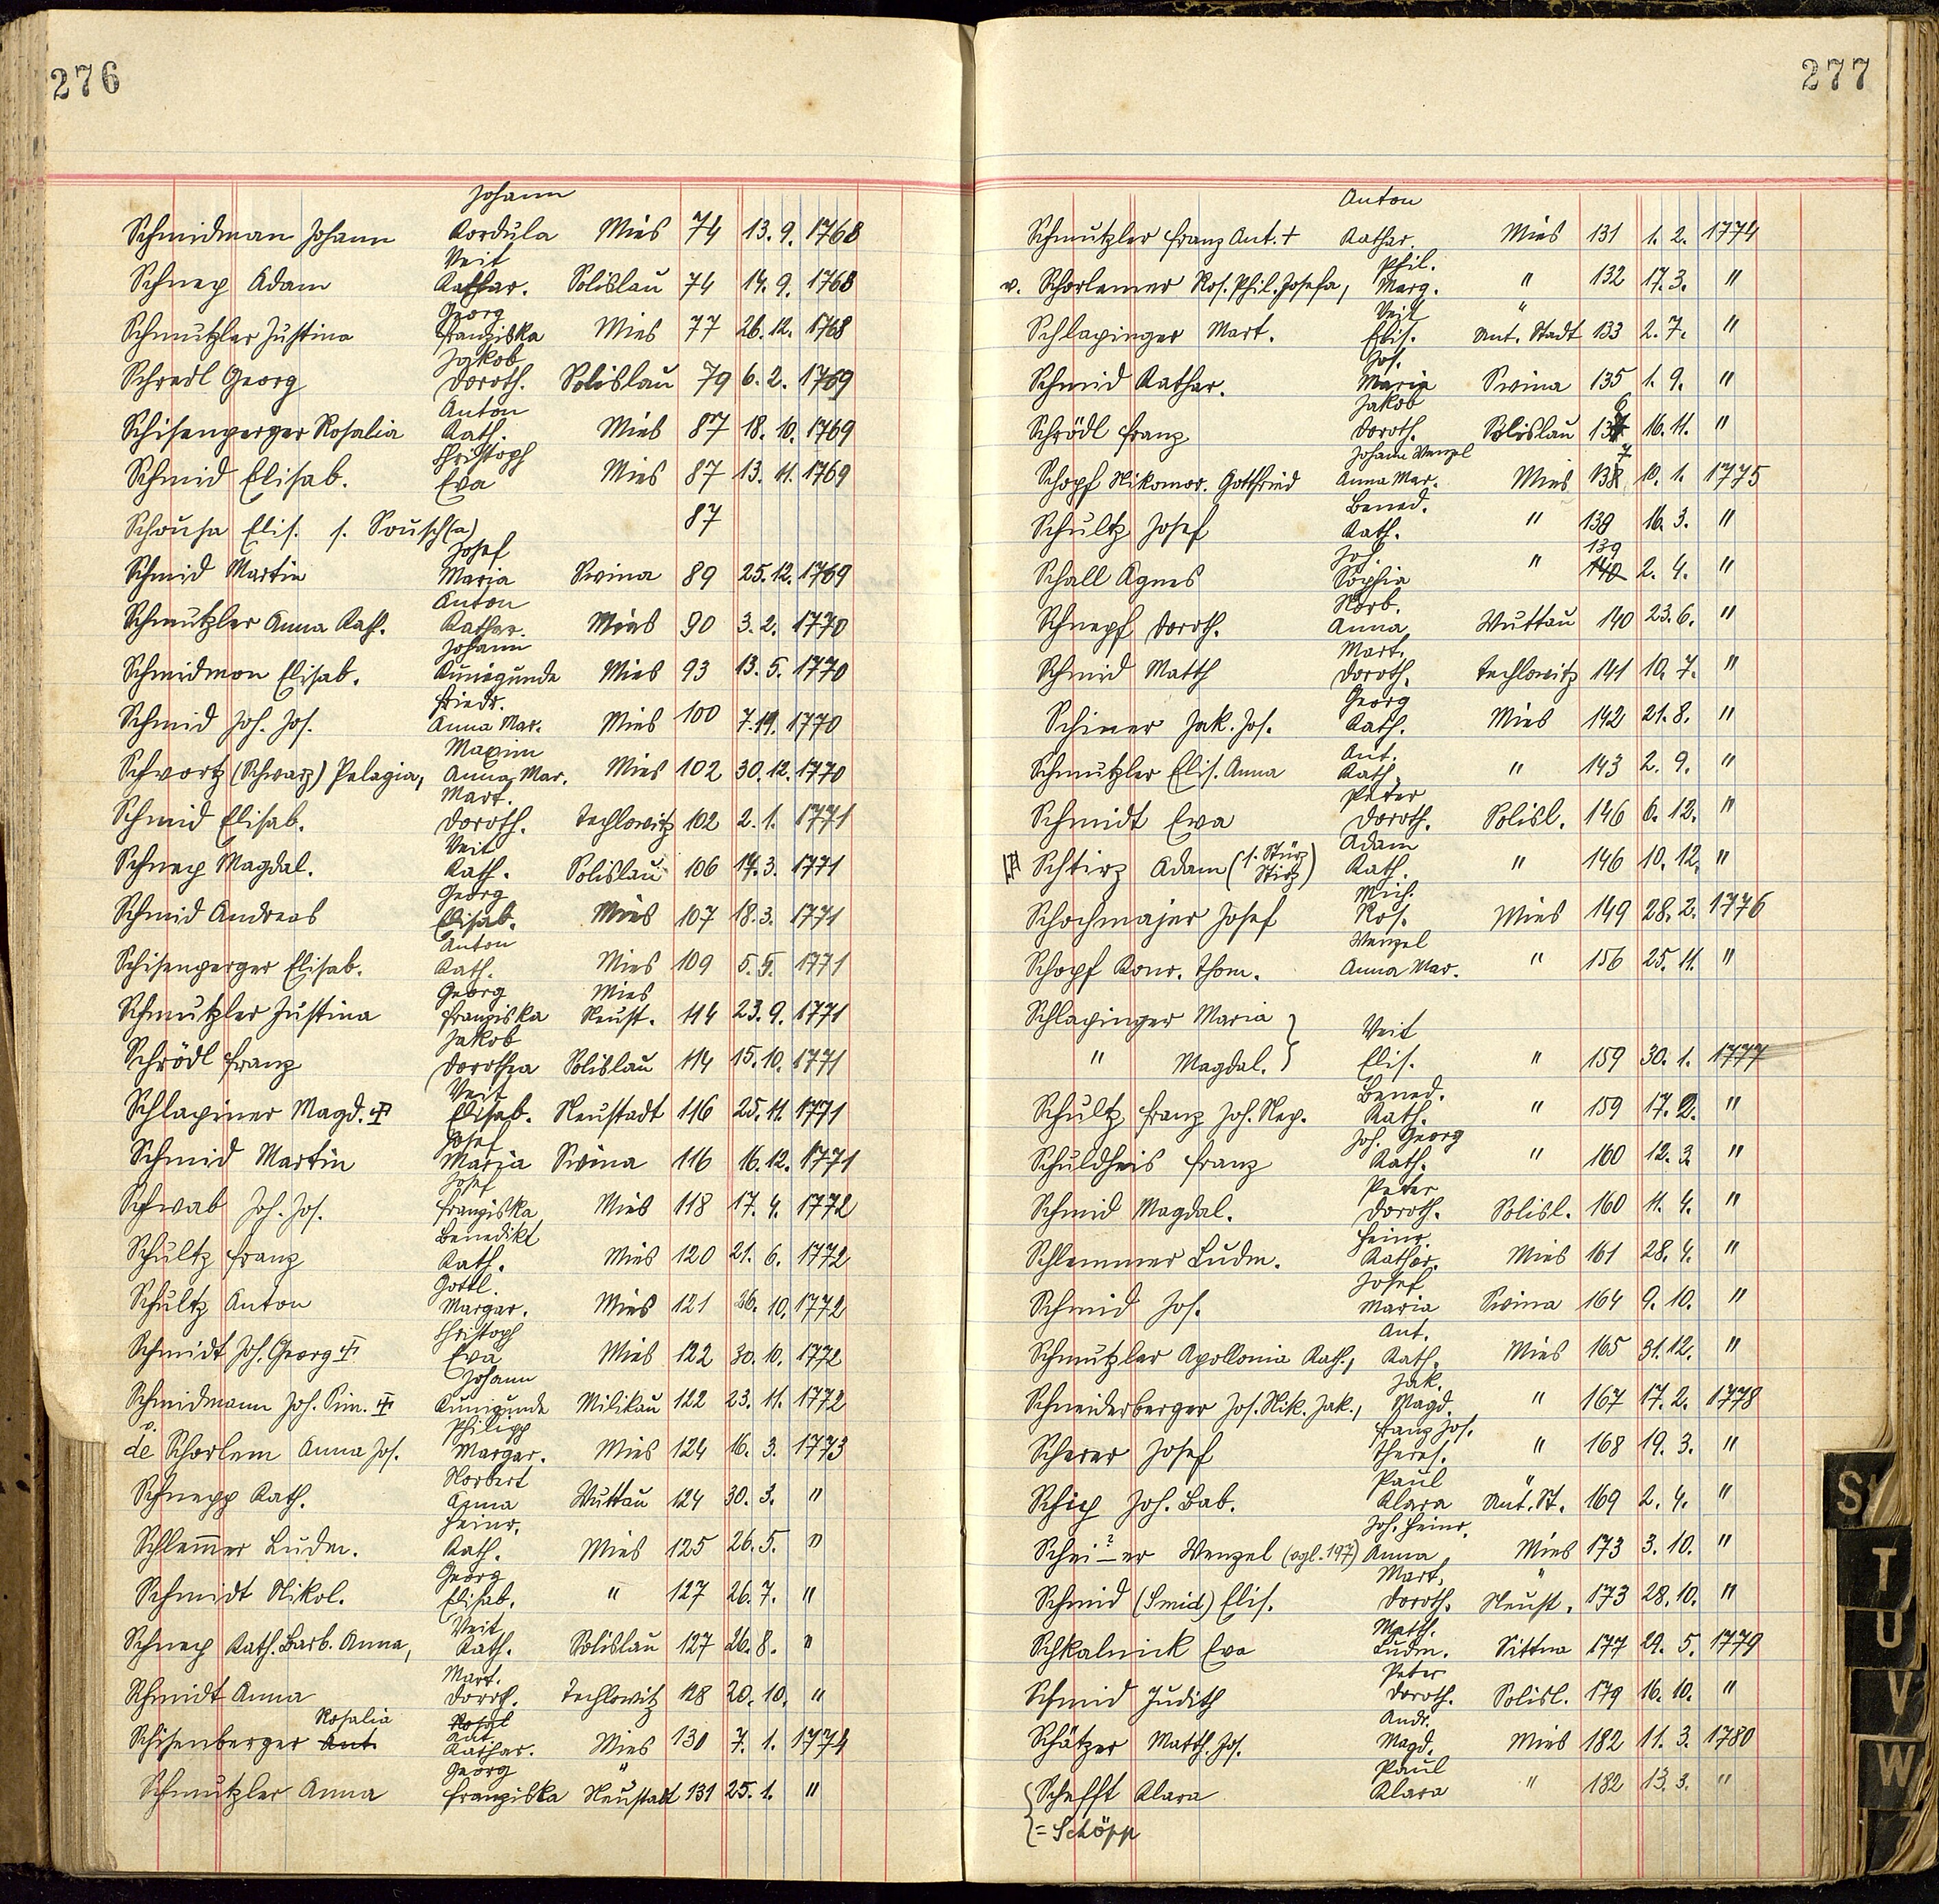 276
Johann
Schmidman Johann Kordula Mies 74 13. 9. 1768
Veit
Schnep Adam Kathar. Solislau 74 14. 9. 1768
Georg
Schmutzler Justina Franziska Mies 77 26. 12. 1768
Jakob
Schredl Georg Doroth. Solislau 79 6. 2. 1769
Anton
Schisenperger Rosalia Kath. Mies 87 18. 10. 1769
Christoph
Schmid Elisab. Eva Mies 87 13. 11. 1769
Schousa Elis. s. Sousch(a) 87
Josef
Schmid Martin Maria Swina 89 25. 12. 1769
Anton
Schmutzler Anna Kath. Kathar. Mies 90 3. 2. 1770
Johann
Schmidmon Elisab. Kunigunde Mies 93 13. 5. 1770
Friedr.
Schmid Joh. Jos. Anna Mar. Mies 100 7. 1770
Maxim
Schvortz (Schwarz) Pelagia, Anna Mar. Mies 102 30. 12. 1770
Mart.
Schmid Elisab. Doroth. Techlowitz 102 2. 1. 1771
Veit
Schnep Magdal. Kath. Solislau 106 14. 3. 1771
Georg
Schmid Andreas Elisab. Mies 107 18. 3. 1771
Anton
Schisenperger Elisab. Kath. Mies 109 5. 5. 1771
Georg Mies
Schmutzler Justina Franziska Neust. 114 23. 9. 1771
Jakob
Schrödl Franz Dorothea Solislau 114 15. 10. 1771
Veit
Schlapiner Magd. Elisab. Neustadt 116 25. 11. 1771
Josef
Schmid Martin Maria Swina 116 16. 12. 1771
Josef
Schwab Joh. Jos. Franziska Mies 118 17. 4. 1772
Benedikt
Schultz Franz Kath. Mies 120 21. 6. 1772
Gottl.
Schultz Anton Margar. Mies 121 26. 10. 1772
Christoph
Schmidt Joh. Georg Eva Mies 122 30. 10. 1772
Johann
Schmidmann Joh. Sim. Kunigunde Milikau 122 23. 11. 1772
v. Philipp
de Schorlem Anna Jos. Margar. Mies 124 16. 3. 1773
Norbert
Schnepp Kath. Anna Wuttau 124 30. 3. "
Heinr.
Schlem̄er Ludm. Kath. Mies 125 26. 5. "
Georg
Schmidt Nikol. Elisab. " 127 26. 7. "
Veit
Schnep Kath. Barb. Anna, Kath. Solislau 127 26. 8. "
Mart.
Schmidt Anna Doroth. Techlowitz 128 20. 10. "
Rosalia Rosal
Kat.
Schisenberger Ant Kathar. Mies 130 7. 1. 1774
Georg "
Schmutzler Anna Franziska Neustadt 131 25. 1. "
277
Anton
Schmutzler Franz Ant. + Kathar. Mies 131 1. 2. 1774
Phil.
v. Schorlemer Ros. Phil. Josefa, Marg. " 132 17. 3. "
Veit "
Schlapinger Mart. Elis. Ünt. Stadt 133 2. 7. "
Jos.
Schmid Kathar. Maria Swina 135 1. 9. "
Jakob 6
Schrödl Franz Doroth. Solislau 137 16. 11. "
Johann Wenzel 7
Schopf Nikomor. Gottfried Anna Mar. Mies 138 10. 1. 1775
Bened.
Schultz Josef Kath. " 138 16. 3. "
Joh. 139
Schall Agnes Sophia " 140 2. 4. "
Norb.
Schnepf Doroth. Anna Wuttau 140 23. 6. "
Mart.
Schmid Matth Doroth. Techlowitz 141 10. 7. "
Georg
Schiner Jak. Jos. Kath. Mies 142 21. 8. "
Ant.
Schmutzler Elis. Anna Kath. " 143 2. 9. "
Peter
Schmidt Eva Doroth. Solisl. 146 6. 12. "
Adam
Schtirz Adam (s. Stürz Stirz) Kath. " 146 10. 12. "
Mich.
Schochmajer Josef Ros. Mies 149 28. 2. 1776
Wenzel
Schopf Konr. Thom. Anna Mar. " 156 25. 11. "
Schlapinger Maria } Veit
" Magdal. } Elis. " 159 30. 1. 1777
Bened.
Schultz Franz Joh. Nep. Kath. " 159 17. 2. "
Joh. Georg
Schuldheis Franz Kath. " 160 12. 3. "
Peter
Schmid Magdal. Doroth. Solisl. 160 11. 4. "
Heinr.
Schlemmer Ludm. Kathar. Mies 161 28. 4. "
Josef
Schmid Jos. Maria Swina 164 9. 10. "
Ant.
Schmutzler Apollonia Kath., Kath. Mies 165 31. 12. "
Jak.
Schneiderberger Jos. Nik. Jak., Magd. " 167 17. 2. 1778
Franz Jos.
Scherer Josef Theres. " 168 19. 3. "
Paul "
Schip Joh. Bab. Klara Ünt. St. 169 2. 4. "
Joh. Heinr.
Schei?er Wenzel (vgl. 197) Anna Mies 173 3. 10. "
Mart. "
Schmid (Smid) Elis. Doroth. Neust. 173 28. 10. "
Math.
Schkalnick Eva Ludm. Sittna 177 29. 5. 1779
Peter
Schmid Judith Doroth. Solisl. 179 16. 10. "
Andr.
Schätzer Matth. Jos. Magd. Mies 182 11. 3. 1780
Paul
{ Schefft Klara Klara " 182 13. 3. "
= Schöpp
S
T
U
V
W